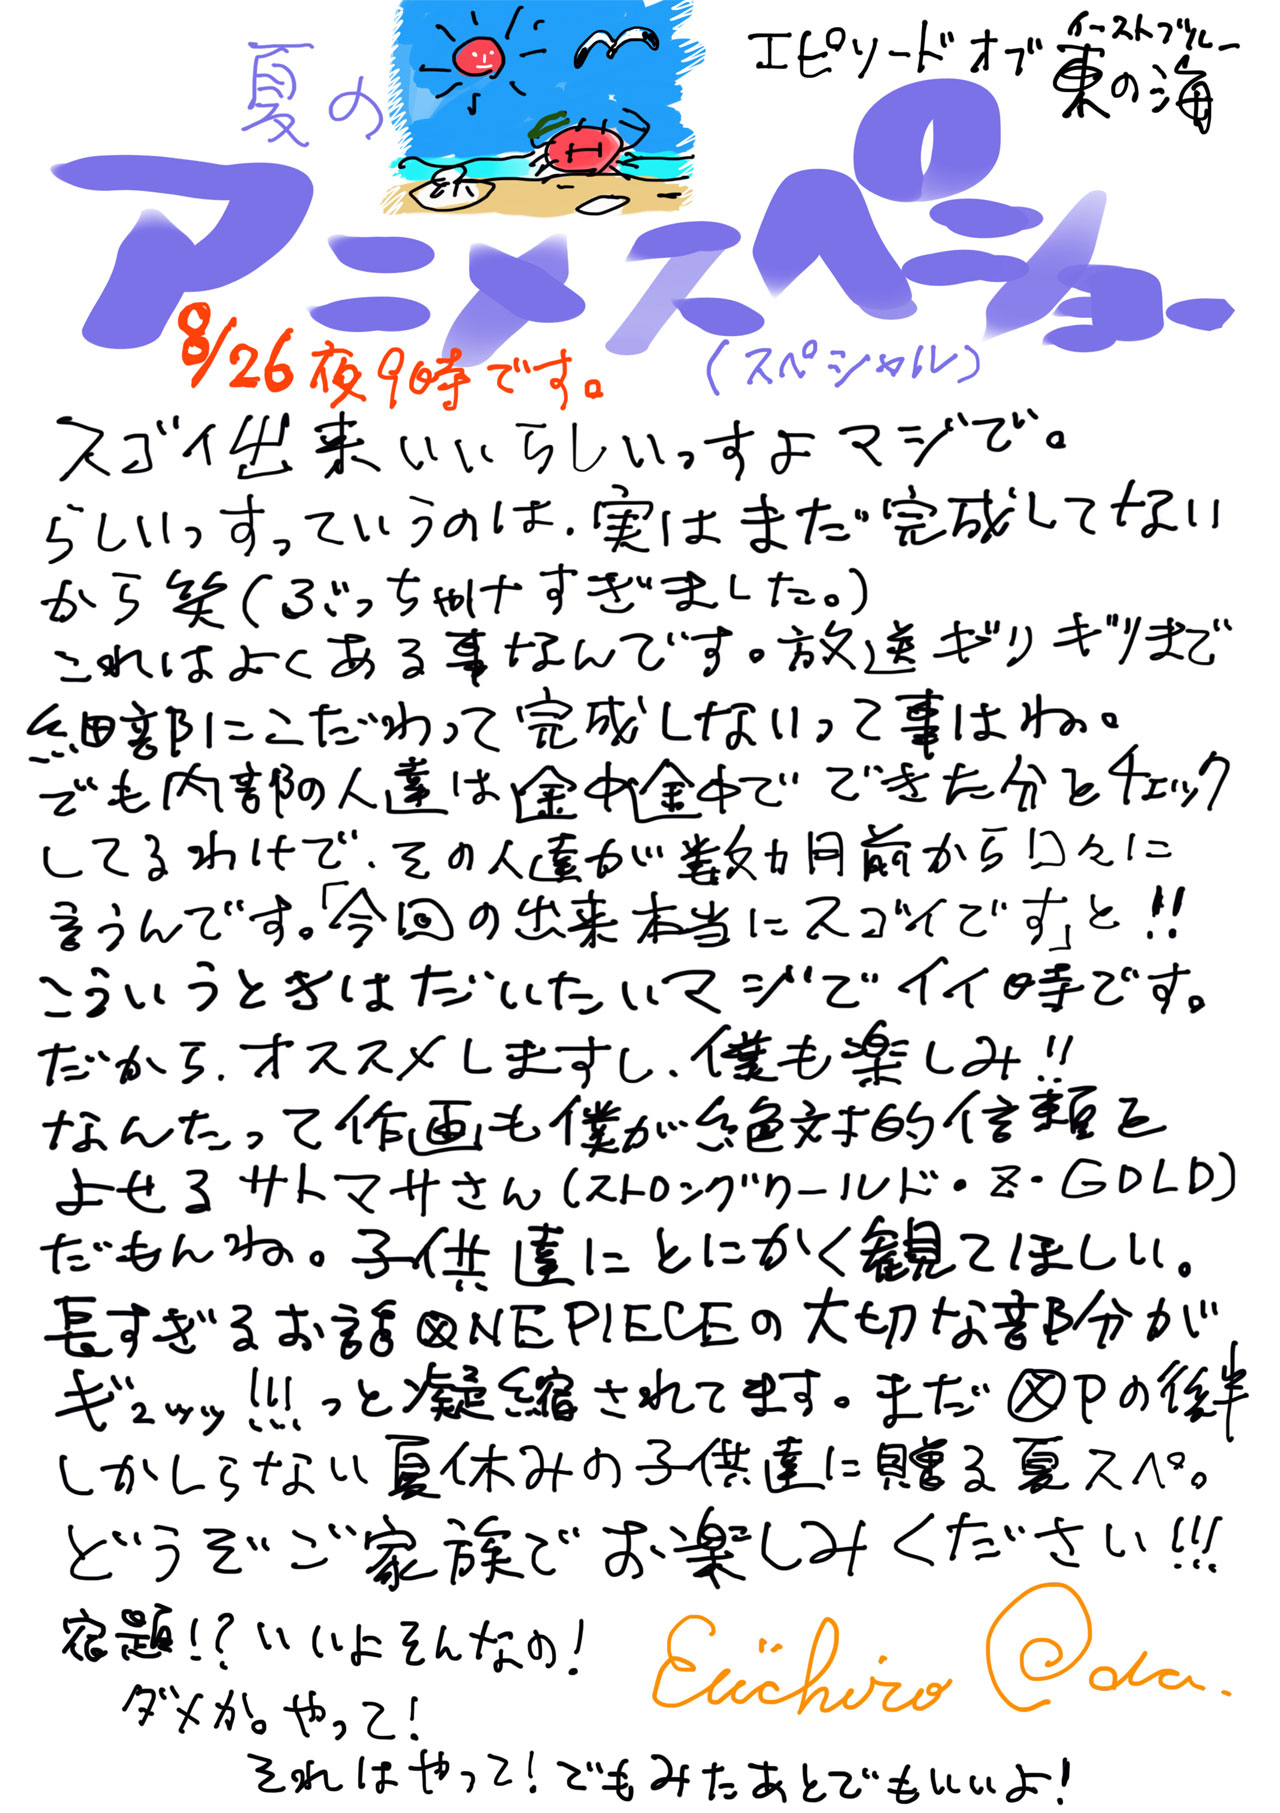 夏の
エピソードオブ東の海
イーストブルー
アニメスペーショー
8/26夜9時です。
(スペシャル)
スゴイ出来いいらしいっすよマジで。
らしいっすっていうのは、実はまだ完成してない
から笑(ぶっちゃけすぎました。)
これはよくある事なんです。放送ギリギリまで
細部にこだわって完成しないって事はね。
でも内部の人達は途中途中でできた分をチェック
してるわけで、その人達が数カ月前から口々に
言うんです。「今回の出来本当にスゴイです」と!!
こういうときはだいたいマジでイイ時です。
だから、オススメしますし、僕も楽しみ!!
なんたって作画も僕が絶対的信頼を
よせるサトマサさん(ストロングワールド・Z・GOLD)
だもんね。子供達にとにかく観てほしい。
長すぎるお話ONE PIECEの大切な部分が
ギュッッ!!!っと凝縮されてます。まだOPの後半
しかしらない夏休みの子供達に贈る夏スペ。
どうぞご家族でお楽しみください!!!
宿題!?いいよそんなの!
ダメか。やって!
それはやって!でもみたあとでもいいよ!
Eiichiro Oda.